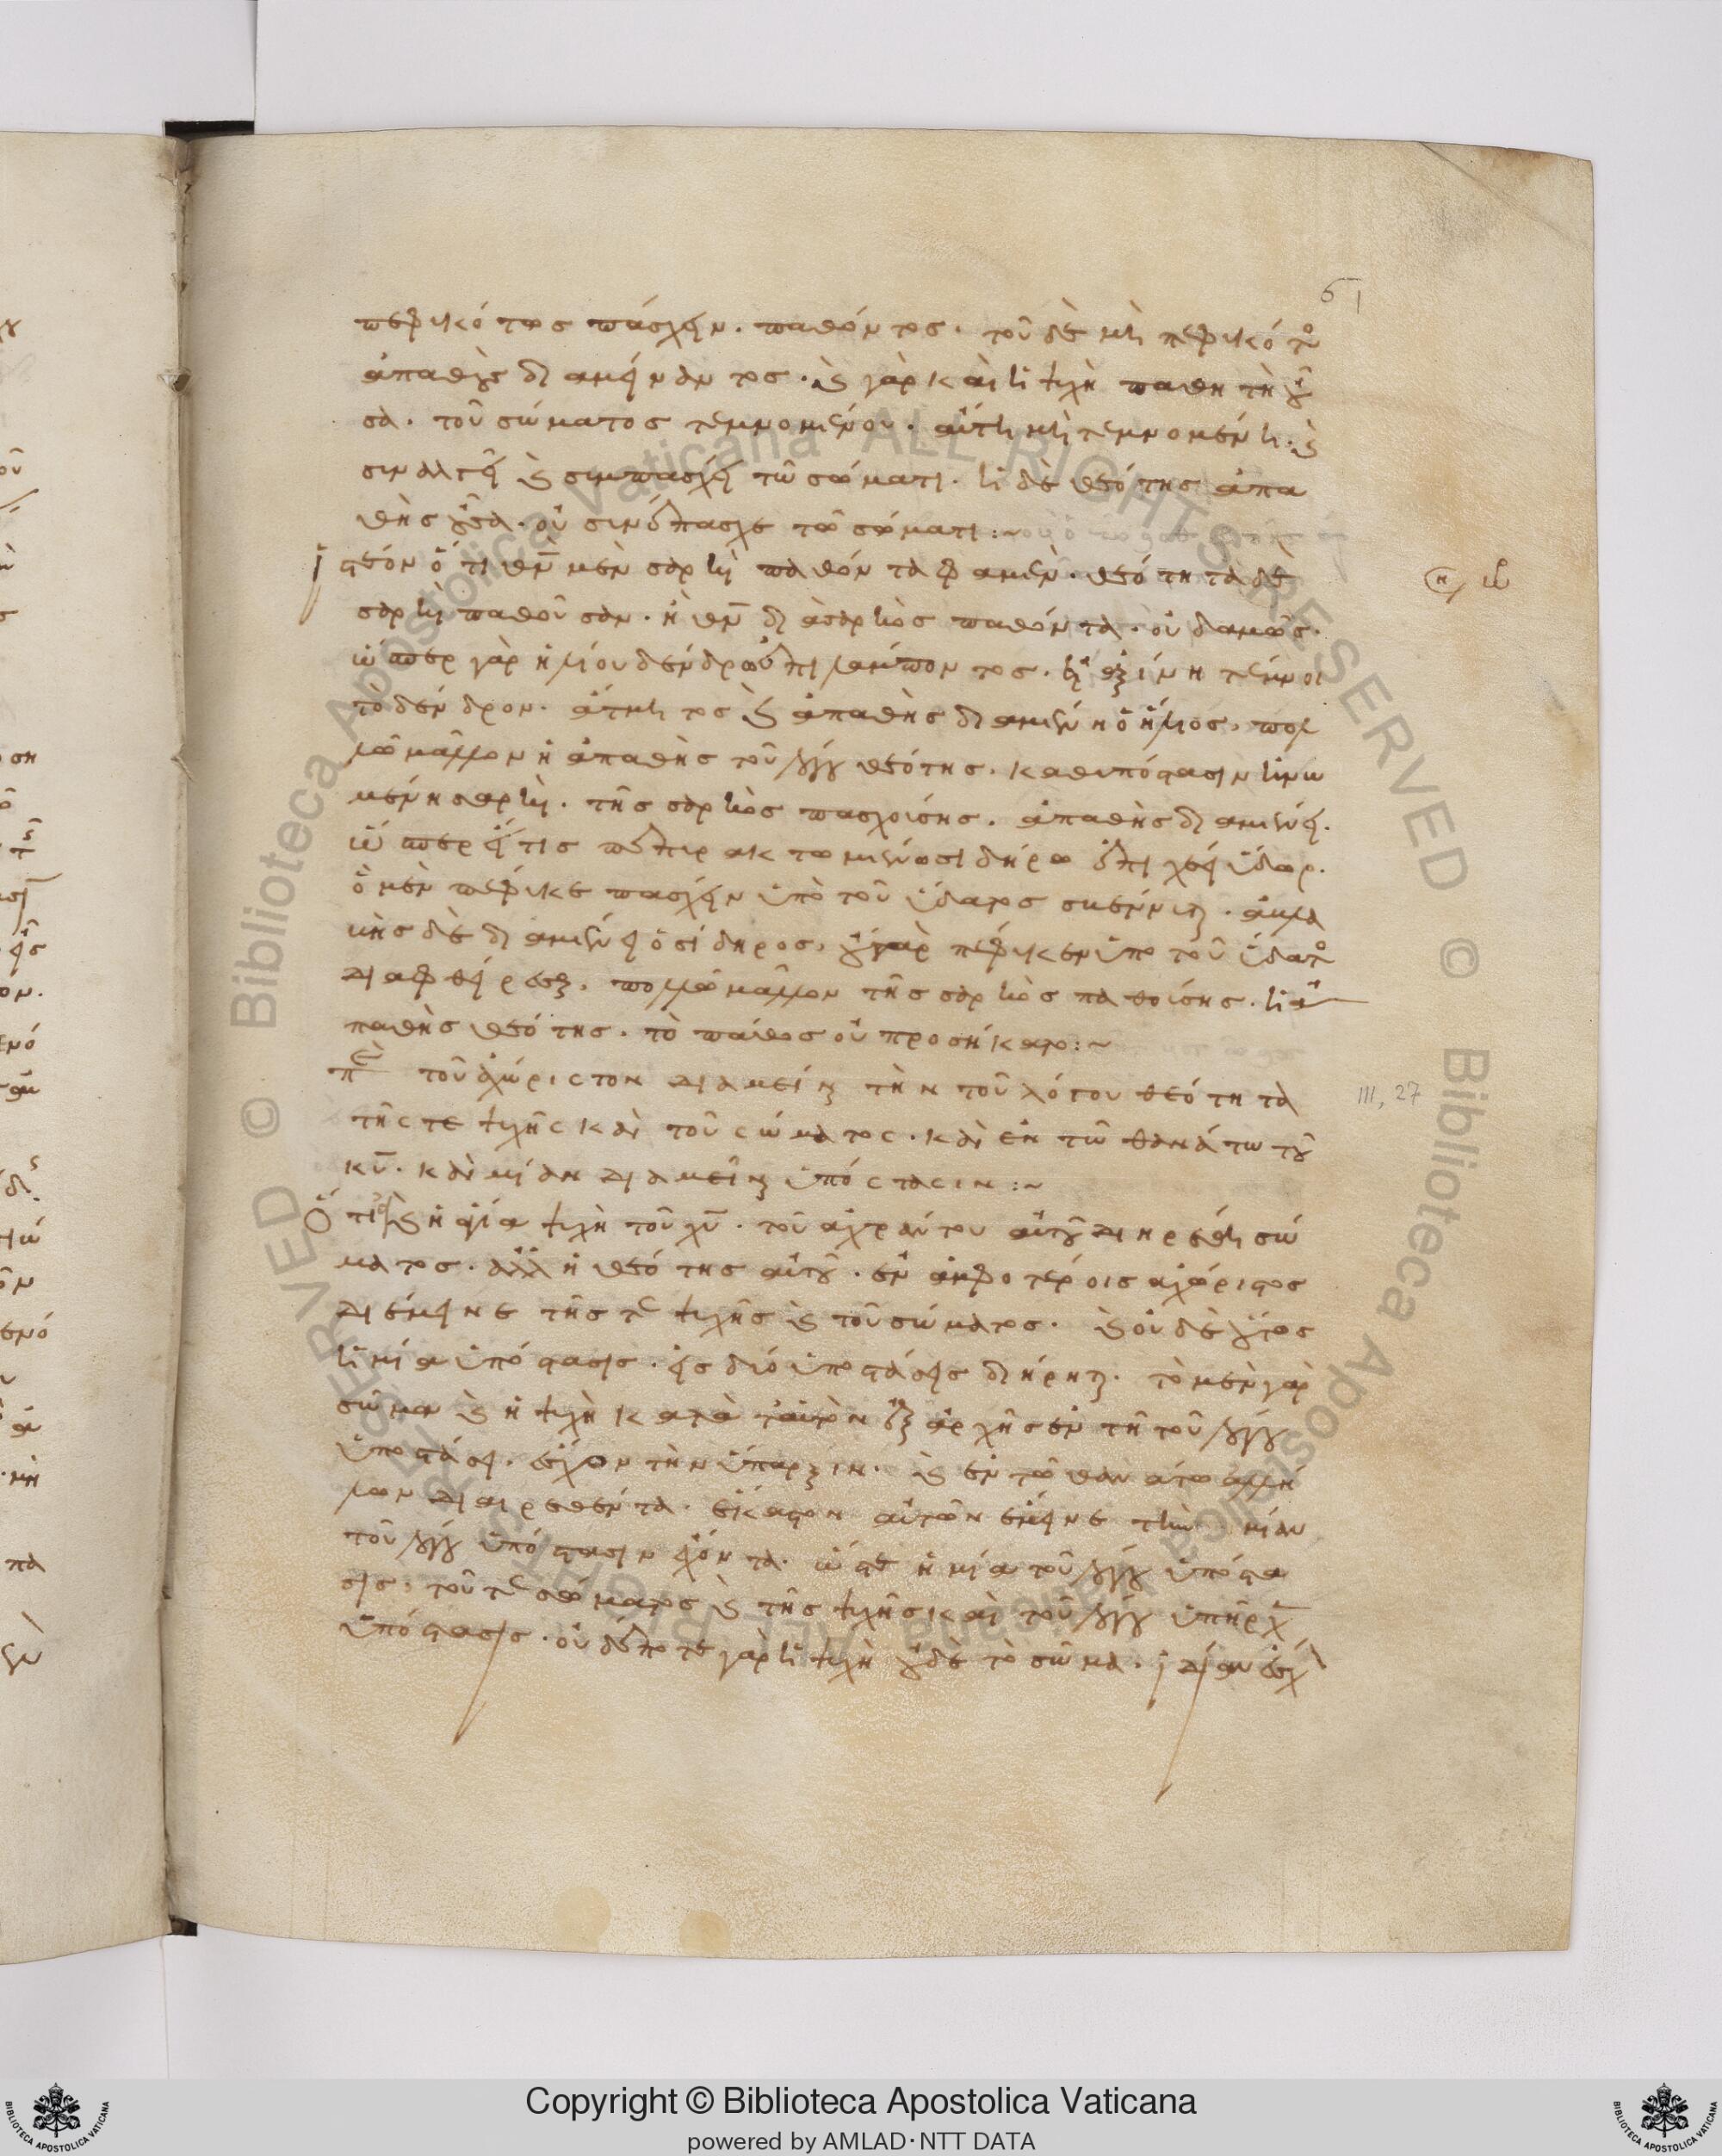 61
πεφυκότος πάσχειν. παθόντος. τοῦ δὲ μὴ πεφυκότος
ἀπαθοῦς διαμείναντος. καὶ γὰρ καὶ ἡ ψυχὴ παθητὴ οὖ
σα. τοῦ σώματος τεμνομένου. αὐτὴ μὴ τεμνομένη. καὶ
συναλγεῖ καὶ συμπάσχει τῶ σώματι. ἡ δὲ θεότης ἀπα
θὴς οὖσα. οὐ συνέπασχε τῶ σώματι:~
ἰστέον ὅτι θν̄ μὲν σαρκὶ παθόντα φαμέν. θεότητα δὲ
σαρκὶ παθοῦσαν. ἢ θν̄ διὰ σαρκὸς παθόντα. οὐδαμῶς.
ὥσπερ γὰρ ἡλίου δένδρω ἐπιλάμποντος. εἰ ἀξίνη τέμνοι
τὸ δένδρον. ἄτμητος καὶ ἀπαθὴς διαμένει ὁ ἥλιος, πολ
λῶ μᾶλλον ἡ ἀπαθὴς τοῦ λόγου θεότης. καθ' υπόστασιν ἡνω
μένη σαρκὶ. τῆς σαρκὸς πασχούσης. ἀπαθὴς διαμένει.
ὥσπερ εἴ τις πεπυρακτωμένω σιδήρω ἐπιχέει ὕδωρ.
ὃ μὲν πέφυκε πάσχειν ὑπὸ τοῦ ὕδατος σβέννυται. ἀβλα
βὴς δὲ διαμένει ὁ σίδηρος, οὐ γὰρ πέφυκεν ὑπο τοῦ ὕδατος
διαφθείρεσθαι, πολλῶ μᾶλλον τῆς σαρκὸς παθούσης. ἡ ἀ
παθὴς θεότης. τὸ πάθος οὐ προσήκατο:~
πε τοῦ ἀχώριστον διαμεῖναι τὴν τοῦ λόγου θεότητα
τῆς τε ψυχῆς καὶ τοῦ σώματος. καὶ ἐν τῶ θανάτω τοῦ
κῡ. καὶ μίαν διαμεῖναι ὑπόστασιν:~
Ὅτι καὶ ἡ ἁγία ψυχὴ τοῦ χῡ. τοῦ ἀχράντου αὐτοῦ διηρέθη σώ
ματος. ἀλλ' ἡ θεότης αὐτοῦ. ἐν ἀμφοτέροις ἀχώριστος
διέμεινε τῆς τε ψυχῆς καὶ τοῦ σώματος. καὶ οὐδὲ οὕτως
ἡ μία ὑπόστασις. εἰς δύο ὑποστάσεις διήρηται. τὸ μὲν γὰρ
σῶμα καὶ ἡ ψυχὴ κατὰ ταὐτὸν ἐξ ἀρχῆς ἐν τῆ τοῦ λόγου
ὑποστάσει. ἔσχον τὴν ὕπαρξιν. καὶ ἐν τῶ θανάτω ἀλλή
λων διαιρεθέντα. ἕκαστον αὐτῶν ἔμεινε τὴν μίαν
τοῦ λόγου ὑπόστασιν ἔχοντα. ὥστε ἡ μία τοῦ λόγου ὑπόστα
σις, τοῦ τε σώματος καὶ τῆς ψυχῆς καὶ τοῦ λόγου ὑπῆρχ
ὑπόστασις. οὐδέποτε γὰρ ἡ ψυχὴ οὐδὲ τὸ σῶμα. ἰδίαν ἔσχ
III, 27
Copyright © Biblioteca Apostolica Vaticana
powered by AMLAD·NTT DATA